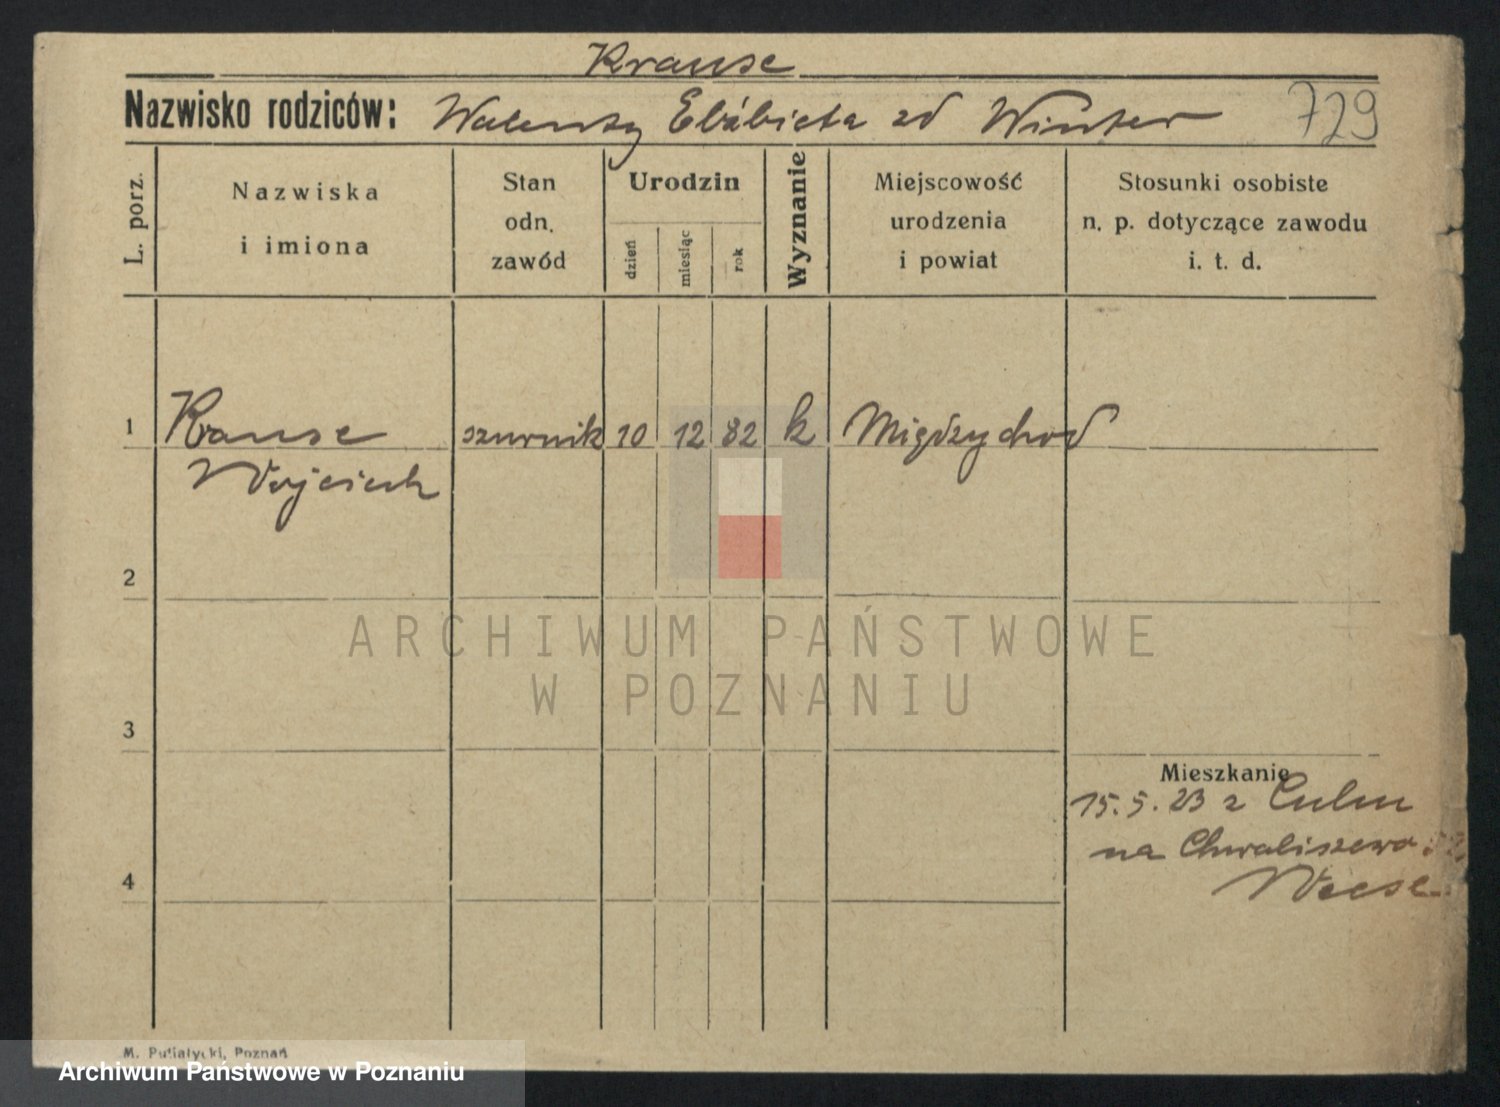 Krause
Nazwisko rodziców: Walenty Elżbieta zd Winter 729
L. porz.
Nazwiska
i imiona
Stan
odn.
zawód
Urodzin
dzień
miesiąc
rok
Wyznanie
Miejscowość
urodzenia
i powiat
Stosunki osobiste
n. p. dotyczące zawodu
i. t. d.
1 Krause szurnik 10 12 82 k Międzychod
Wojciech
2
3
4
Mieszkanie
15.5.23 z Culm
na Chwaliszewo
Weese
ARCHIWUM PAŃSTWOWE
W POZNANIU
M. Putiatycki, Poznań
Archiwum Państwowe w Poznaniu